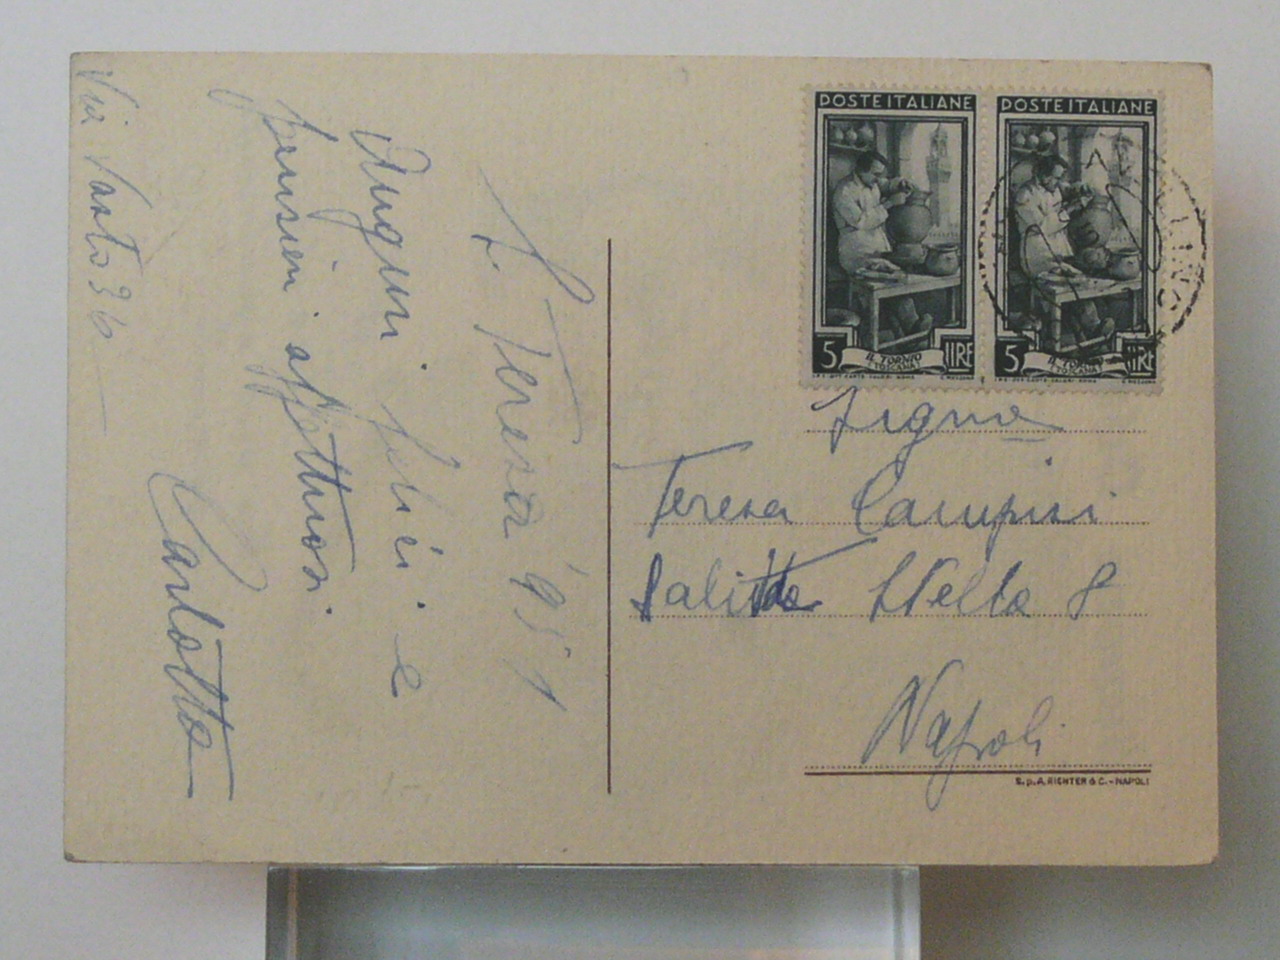 POSTE ITALIANE
5 LIRE
IL TORNIO
(TOSCANA)
POSTE ITALIANE
5 LIRE
IL TORNIO
(TOSCANA)
S. Teresa 951
Auguri felici e
pensieri affettuosi
Carlotta
Via 36
Sigra
Teresa Campisi
Salita Stella 8
Napoli
S.p.A. RICHTER & C. - NAPOLI